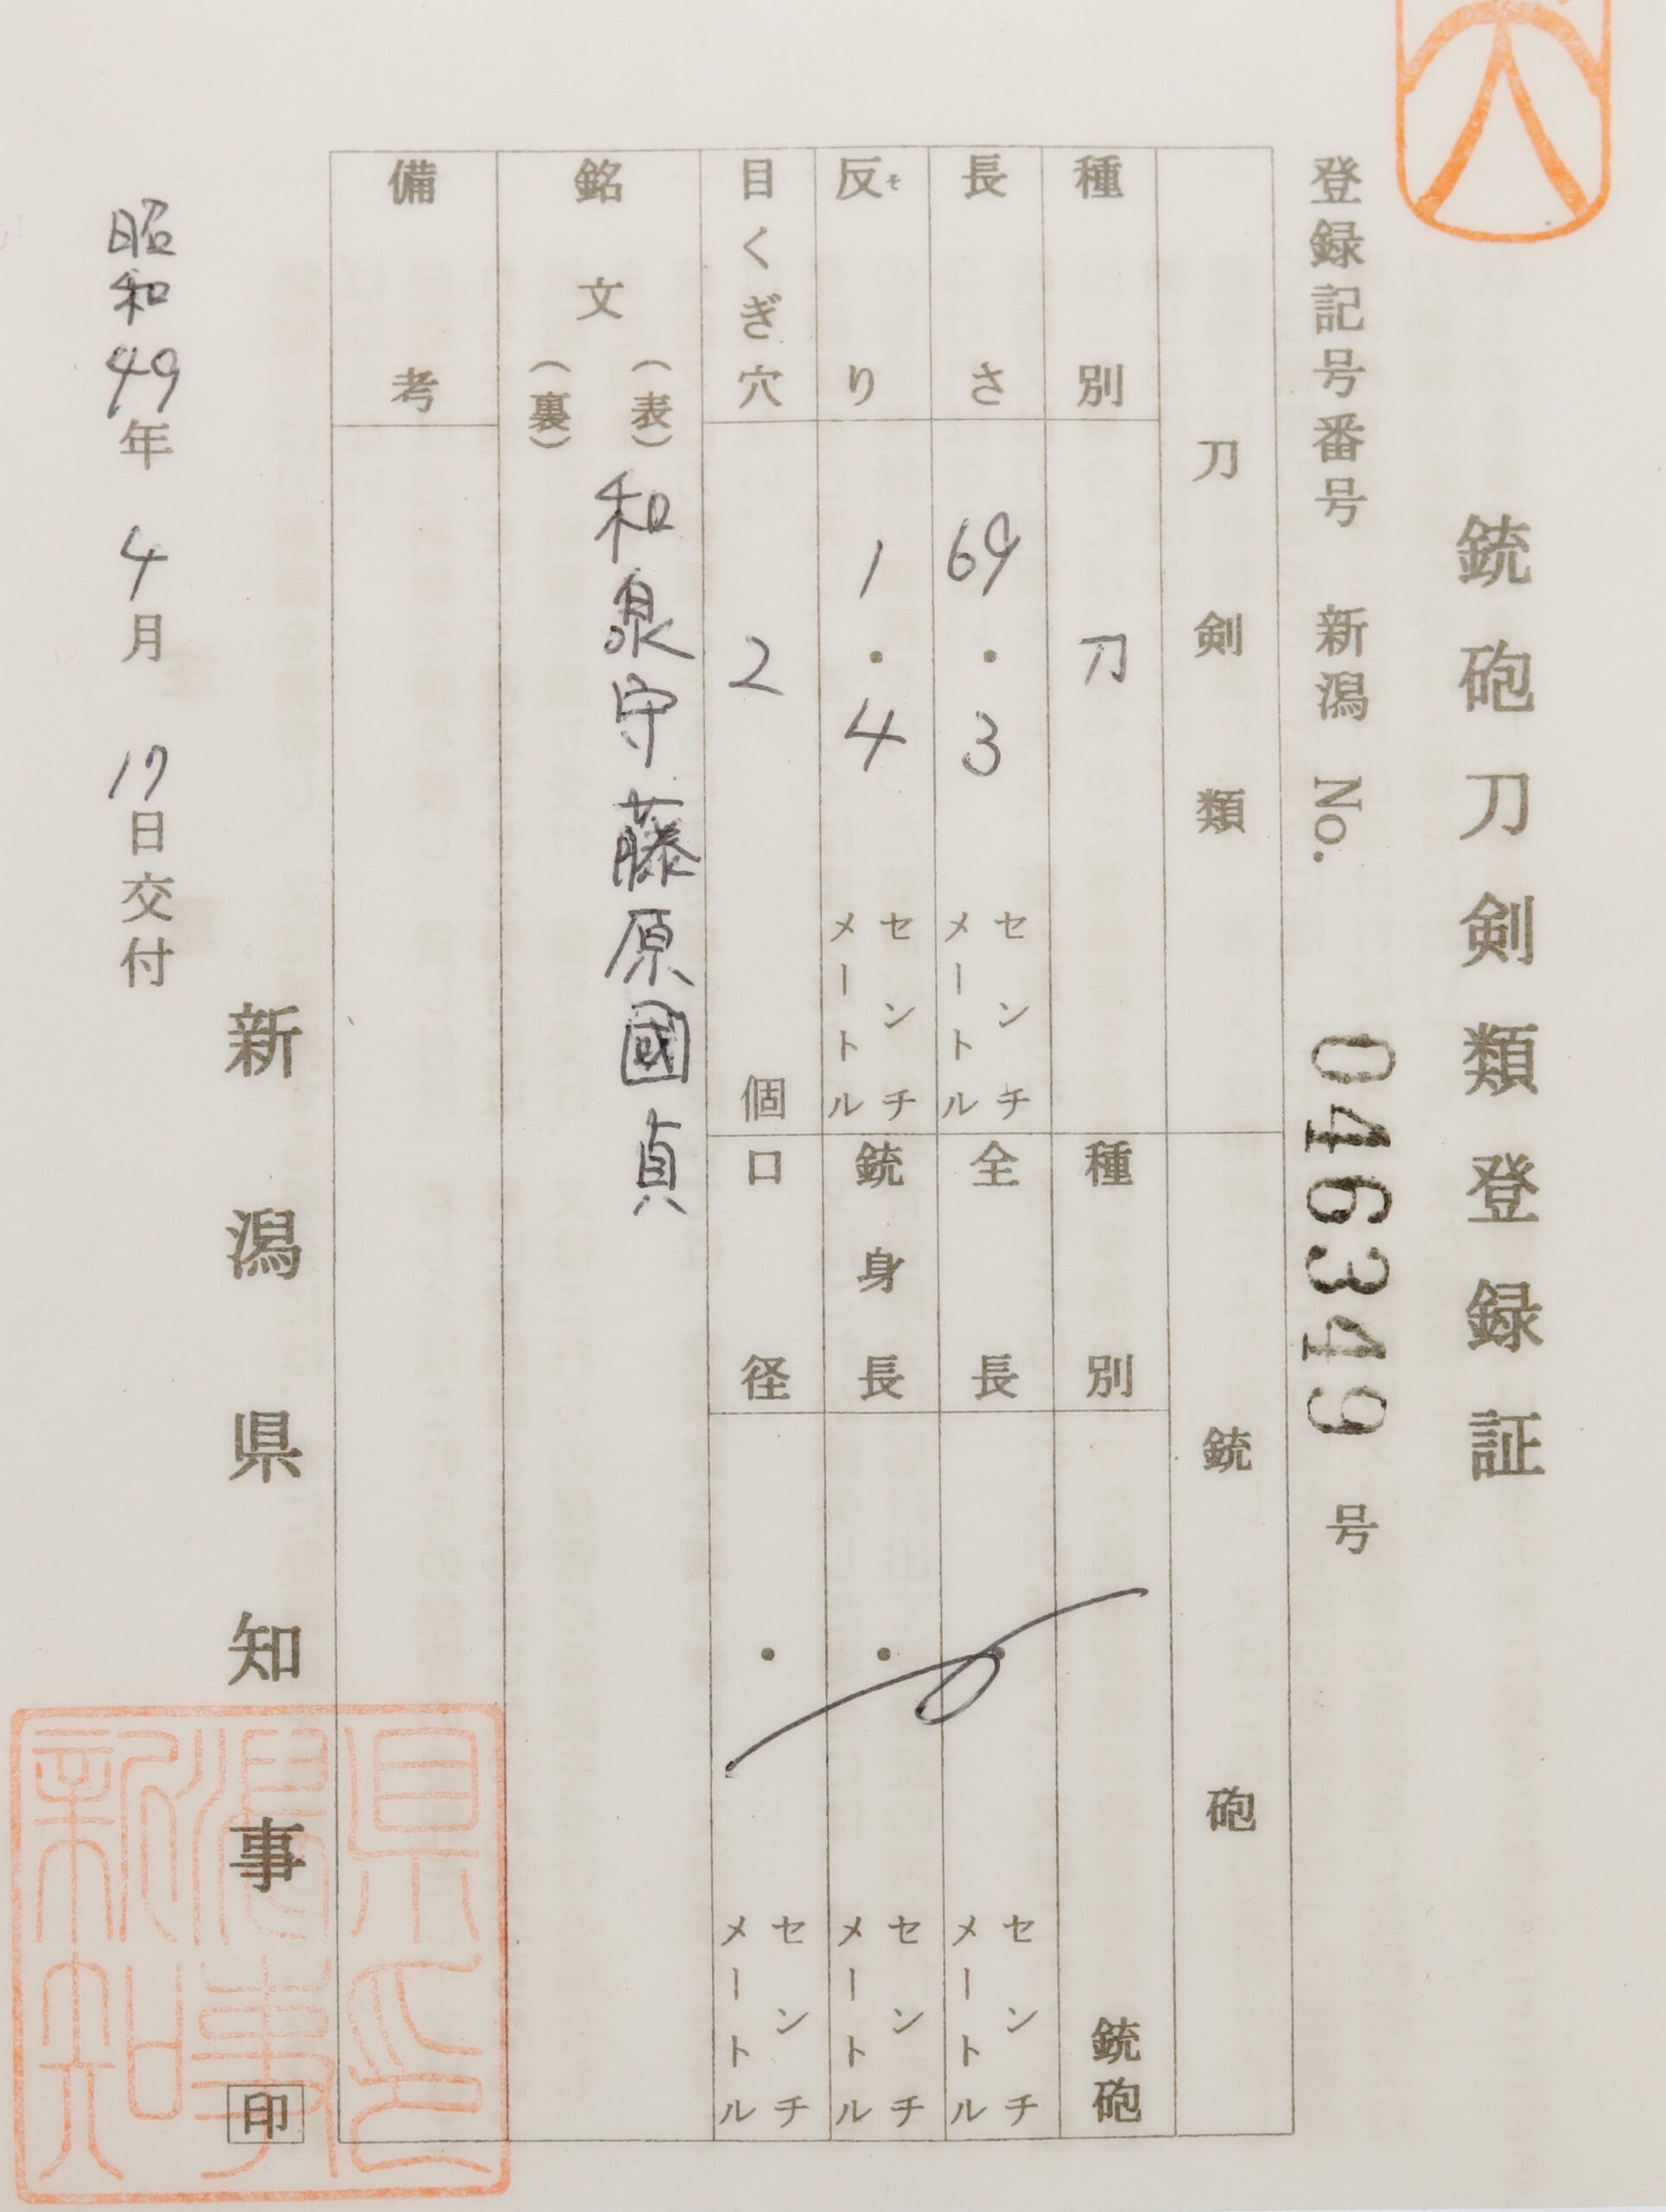 銃砲刀剣類登録証
登録記号番号 新潟 No. 046349 号
刀剣類
種別 刀
長さ 69.3 センチメートル
反り 1.4 センチメートル
そ
目くぎ穴 2 個
銃砲
種別 銃砲
全長 . センチメートル
銃身長 . センチメートル
口径 . センチメートル
銘文
(表) 和泉守藤原國貞
(裏)
備考
昭和49年4月17日交付
新潟県知事 印
新潟県知事印